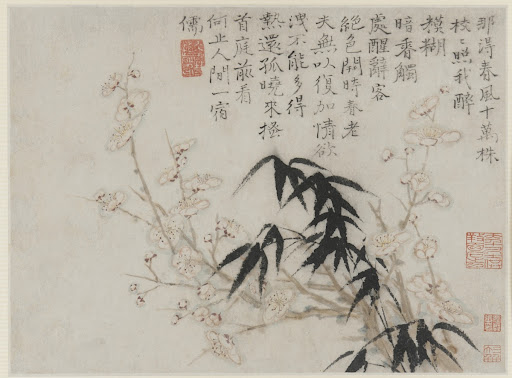 那得春風十萬株
枝〻照我醉
糢糊
暗香觸
處醒辭客
絕色開時春老
夫無以復加情欲
洩不能多得
熱還孤曉來搔
首庭前看
何止人間一宿
儒